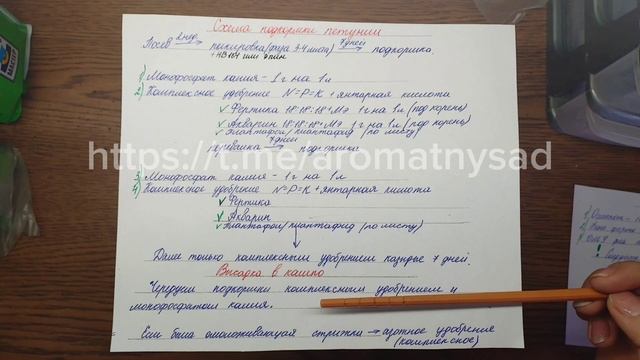 Схема подкормки петунии
Посев 2 нед → пикировка (фаза 3-4 листа) 7 дней → подкормка
+ НВ 101 или эпин
1) Монофосфат калия - 1 г на 1 л
2) Комплексное удобрение N=P=K + янтарная кислота
✓ Фертика 18:18:18+МЭ 1 г на 1 л (под корень)
✓ Акварин 18:18:18+МЭ 1 г на 1 л (под корень)
✓ Плантафол/плантафид (по листу)
7 дней → подкормка
https://t.me/aromatnysad
3) Монофосфат калия - 1 г на 1 л
4) Комплексное удобрение N=P=K + янтарная кислота
✓ Фертика
✓ Акварин
✓ Плантафол/плантафид (по листу)
Далее только комплексным удобрением каждые 7 дней.
Высадка в кашпо
Чередуем подкормки комплексным удобрением и
монофосфатом калия.
Если была омолаживающая стрижка → азотное удобрение
(комплексное)